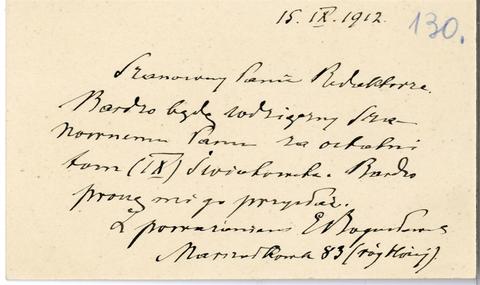 15. IX. 1912.
130.
Szanowny Panie Redaktorze.
Bardzo będę wdzięczny Sza
nownemu Panu za ostatni
tom (IX) Światowita. Bardzo
proszę mi go przysłać.
Z poważaniem E Bogusławs
Marszałkowska 83 (róg Hożej).